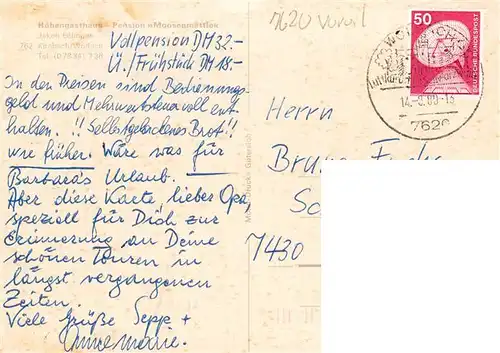 Höhengasthaus - Pension »Moosenmättle«
762
Vollpension DM 32.-
Ü./Frühstück DM 18.-
In den Preisen sind Bedienungs-
geld und Mehrwertsteuer voll ent-
halten. !! Selbstgebackenes Brot!!
wie früher. Wäre was für
Barbara's Urlaub.
Aber diese Karte, lieber Opa,
speziell für Dich zur
Erinnerung an Deine
schönen Touren in
längst vergangenen
Zeiten.
Viele Grüße Sepp +
Annemarie.
7620
50
DEUTSCHE BUNDESPOST
14.-9.80-13
7620
Herrn
Bruno
Sc
7430